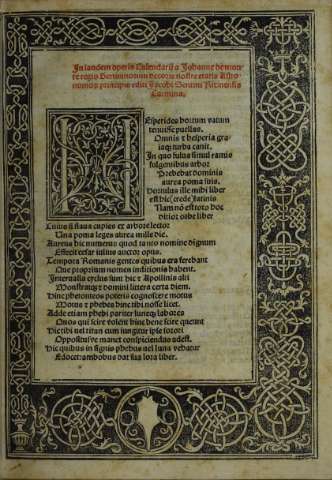 In laudem operis Calendarii a Johanne de mon
te regio Germanorum decoris nostre etatis Astro
nomorum principis editi Jacobi Sentini Ricinensis
Carmina.
Hesperidos hortum vatum
tenuisse puellas.
Omnis et hesperia gra
iaque turba canit.
In quo fulvus simul ramis
fulgentibus arbor
Prebebat dominis
aurea poma suis.
Hortulus ille mihi liber
est hic (crede) latinis
Nam non est toto hoc
ditior orbe liber
Cuius si flavas cupies ex arbore lector
Una poma leges aurea mille die.
Aureus hic numerus quod tanto nomine dignum
Effecit cesar iulius auctor opus.
Tempora Romanis gentes quibus era ferebant
Que proprium nomen indictionis habent.
Intervalla cyclus sunt hic et Apollinis alti
Monstratque et domini littera certa diem.
Hinc phetonteos poteris cognoscere motus
Motus et phebes hinc tibi nosse licet.
Adde etiam phebi pariter luneque labores
Quos qui scire volent hinc bene scire queunt
Hic tibi vel titan cum iungitur ipse sorori
Oppositusve manet conspiciendus adest.
Hic quibus in signis phebus vel luna vehatur
Edocet: ambobus dat sua lora liber.